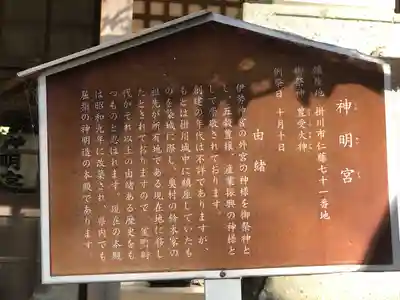 神明宮
鎮座地 掛川市仁藤七十一番地
御祭神 豊受大神
例祭日 十月十日
由緒
伊勢神宮の外宮の神様を御祭神と
し、五穀豊穣、産業振興の神様と
して崇敬されております。
創建の年代は不詳でありますが、
もとは掛川城中に鎮座していたも
のを築城に際し、奥村の鈴木家の
祖先が所有地である現在地に移し
たとされておりますので、室町時
代かそれ以上の由緒ある歴史をも
つものと思はれます。現在の本殿
は昭和九年に改築され、県内でも
屈指の神明造の本殿であります。
神明宮